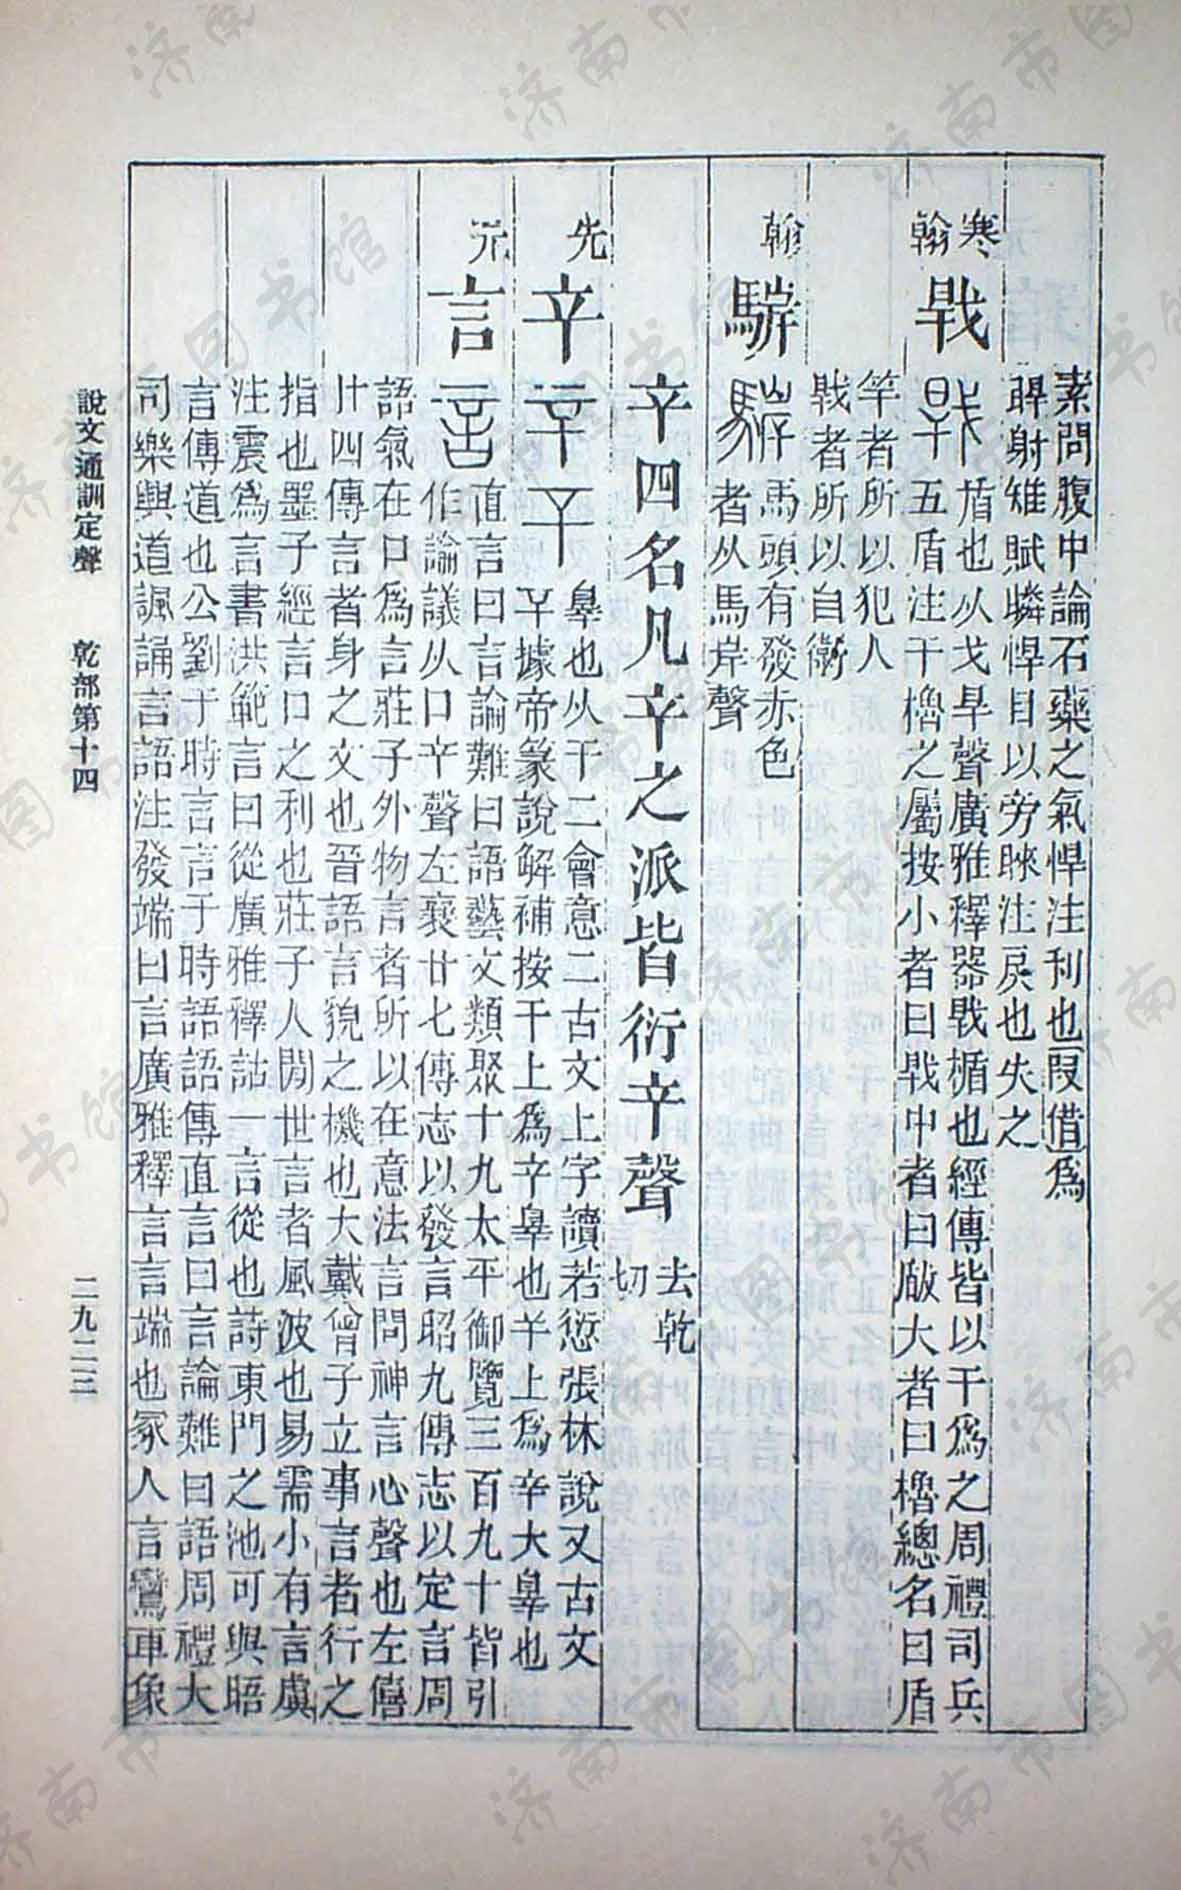 素問腹中論石藥之氣悍注利也叚借爲
睅射雉賦瞵悍目以旁睞注戾也失之
寒
翰
戰盾也从戈旱聲廣雅釋器戰楯也經傳皆以干爲之周禮司兵
五盾注干櫓之屬按小者曰戰中者曰瞂大者曰櫓總名曰盾
竿者所以犯人
戰者所以自衛
翰
馯馬頭有發赤色
者从馬岸聲
䇂四名凡䇂之派皆衍䇂聲
去乾
切
先
䇂
辠也从干二會意二古文上字讀若愆張林說又古文
䇂據帝篆說解補按干上爲䇂辠也𢆉上爲辛大辠也
元
言
直言曰言論難曰語藝文類聚十九太平御覽三百九十皆引
作論議从口䇂聲左襄廿七傳志以發言昭九傳志以定言周
語氣在口爲言莊子外物言者所以在意法言問神言心聲也左僖
廿四傳言者身之文也晉語言貌之機也大戴曾子立事言者行之
指也墨子經言口之利也莊子人閒世言者風波也易需小有言虞
注震爲言書洪範言曰從廣雅釋詁一言從也詩東門之池可與晤
言傳道也公劉于時言言于時語語傳直言曰言論難曰語周禮大
司樂興道諷誦言語注發端曰言廣雅釋言言端也冢人言鸞車象
說文通訓定聲　乾部第十四
二九二三